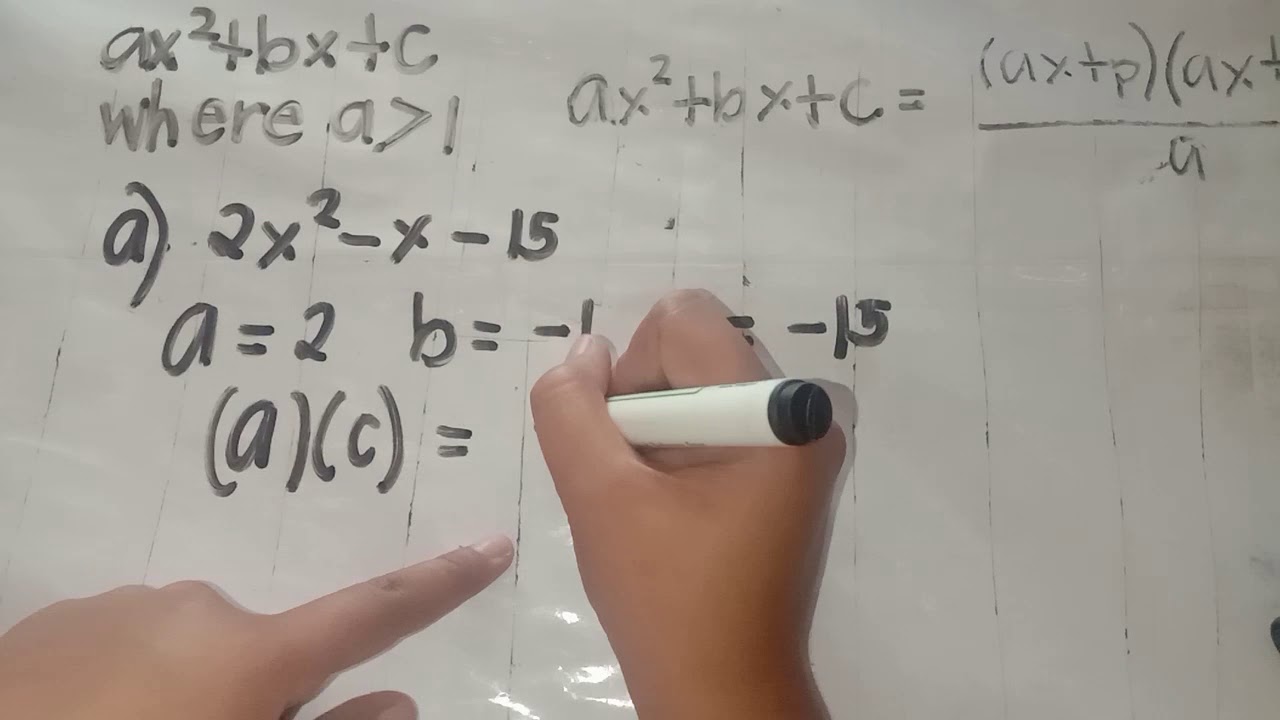 ax²+bx+c
where a>1
ax²+bx+c = (ax+p)(ax+
a
a) 2x²-x-15
a=2 b=-1 = -15
(a)(c) =